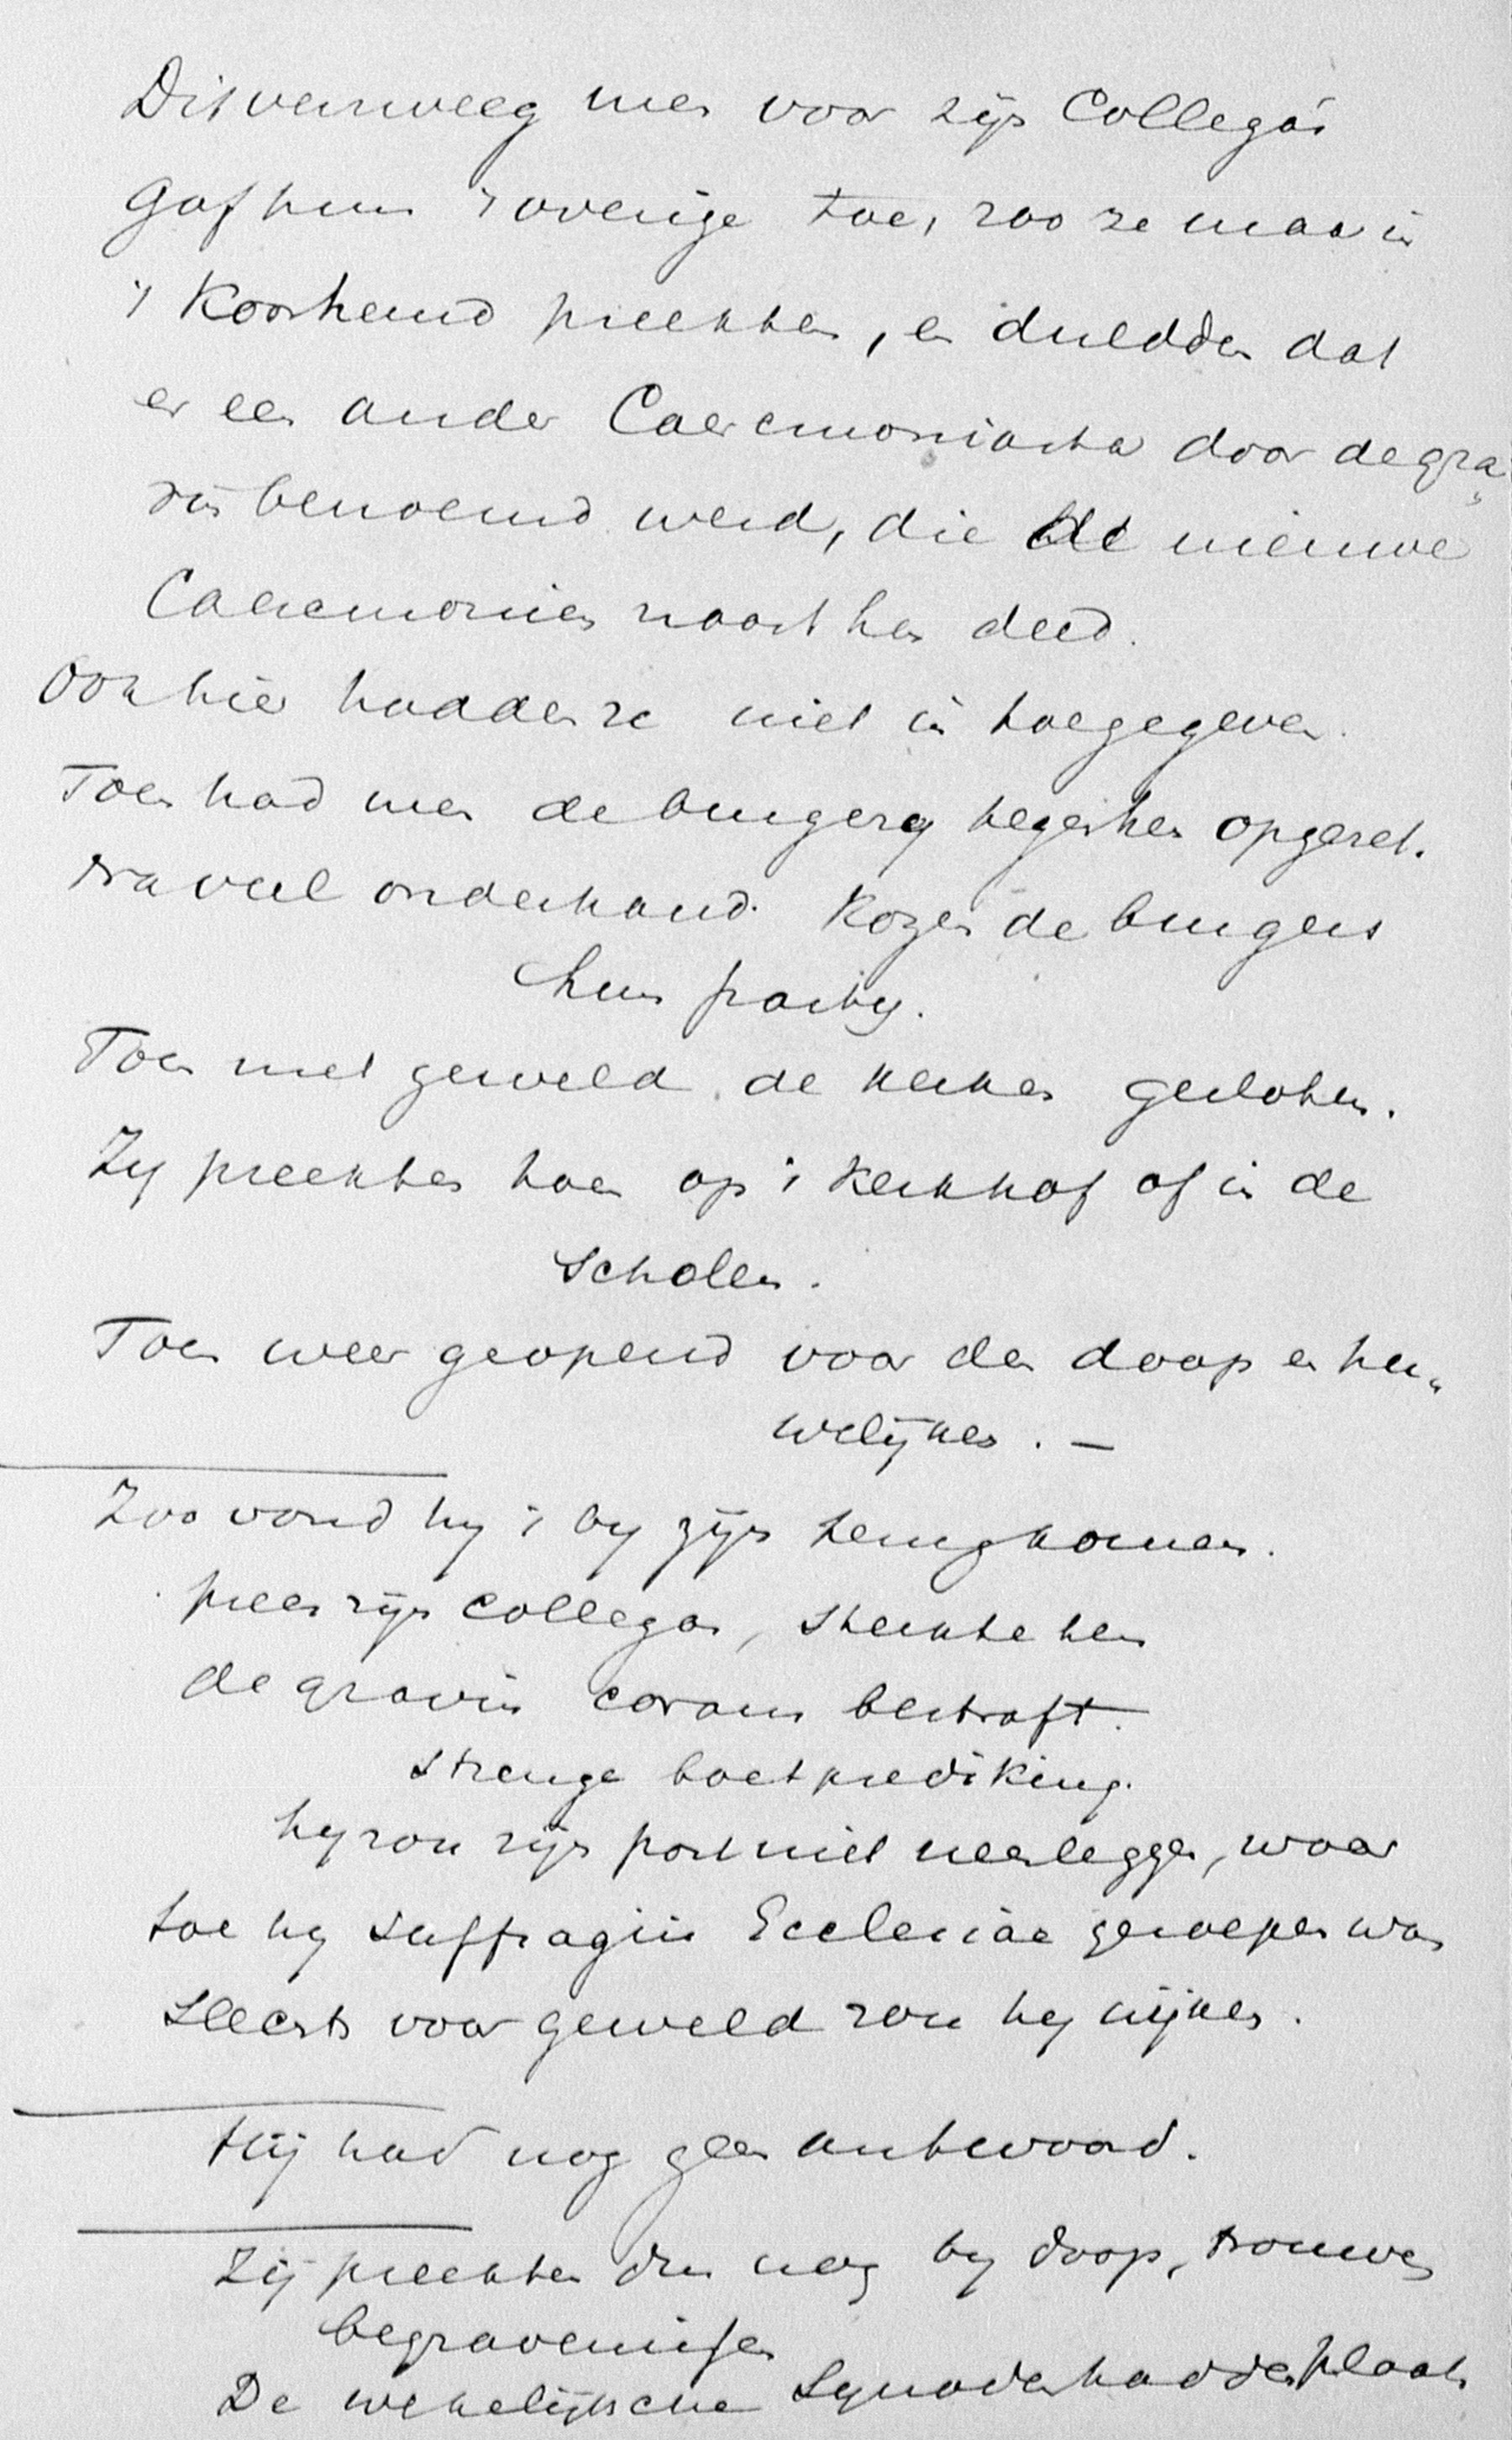 Dit verweeg men voor zijn Collega's
gaf hun 't overige toe, zoo ze maar in
't Koorhemd preekten, en duldden dat
er een ander Caeremoniarta door de gra„
vin benoemd werd, die de nieuwe
Caeremonien naast hen deed.
Ook hier hadden ze niet in toegegeven.
Toen had men de burgery tegen hen opgezet.
Na veel onderhand. Kozen de burgers
hun party.
Toen met geweld de kerken gesloten.
Zy preekten toen op 't Kerkhof of in de
Scholen.
Toen weer geopend voor den doop en hu„
welijken. —
Zoo vond hy 't by zijn terugkomen.
prees zijn collegas, sterkte hen
de gravin coram bestraft.
Strenge boetprediking.
hy zou zijn post niet neerleggen, waar
toe hy suffragiis Ecclesiae geroepen was
Slechts voor geweld zou hy wijken.
Hij had nog geen antwoord.
Zij preekten dus nog by doop, trouwen
begravenissen
De wekelijksche Synoden hadden plaats